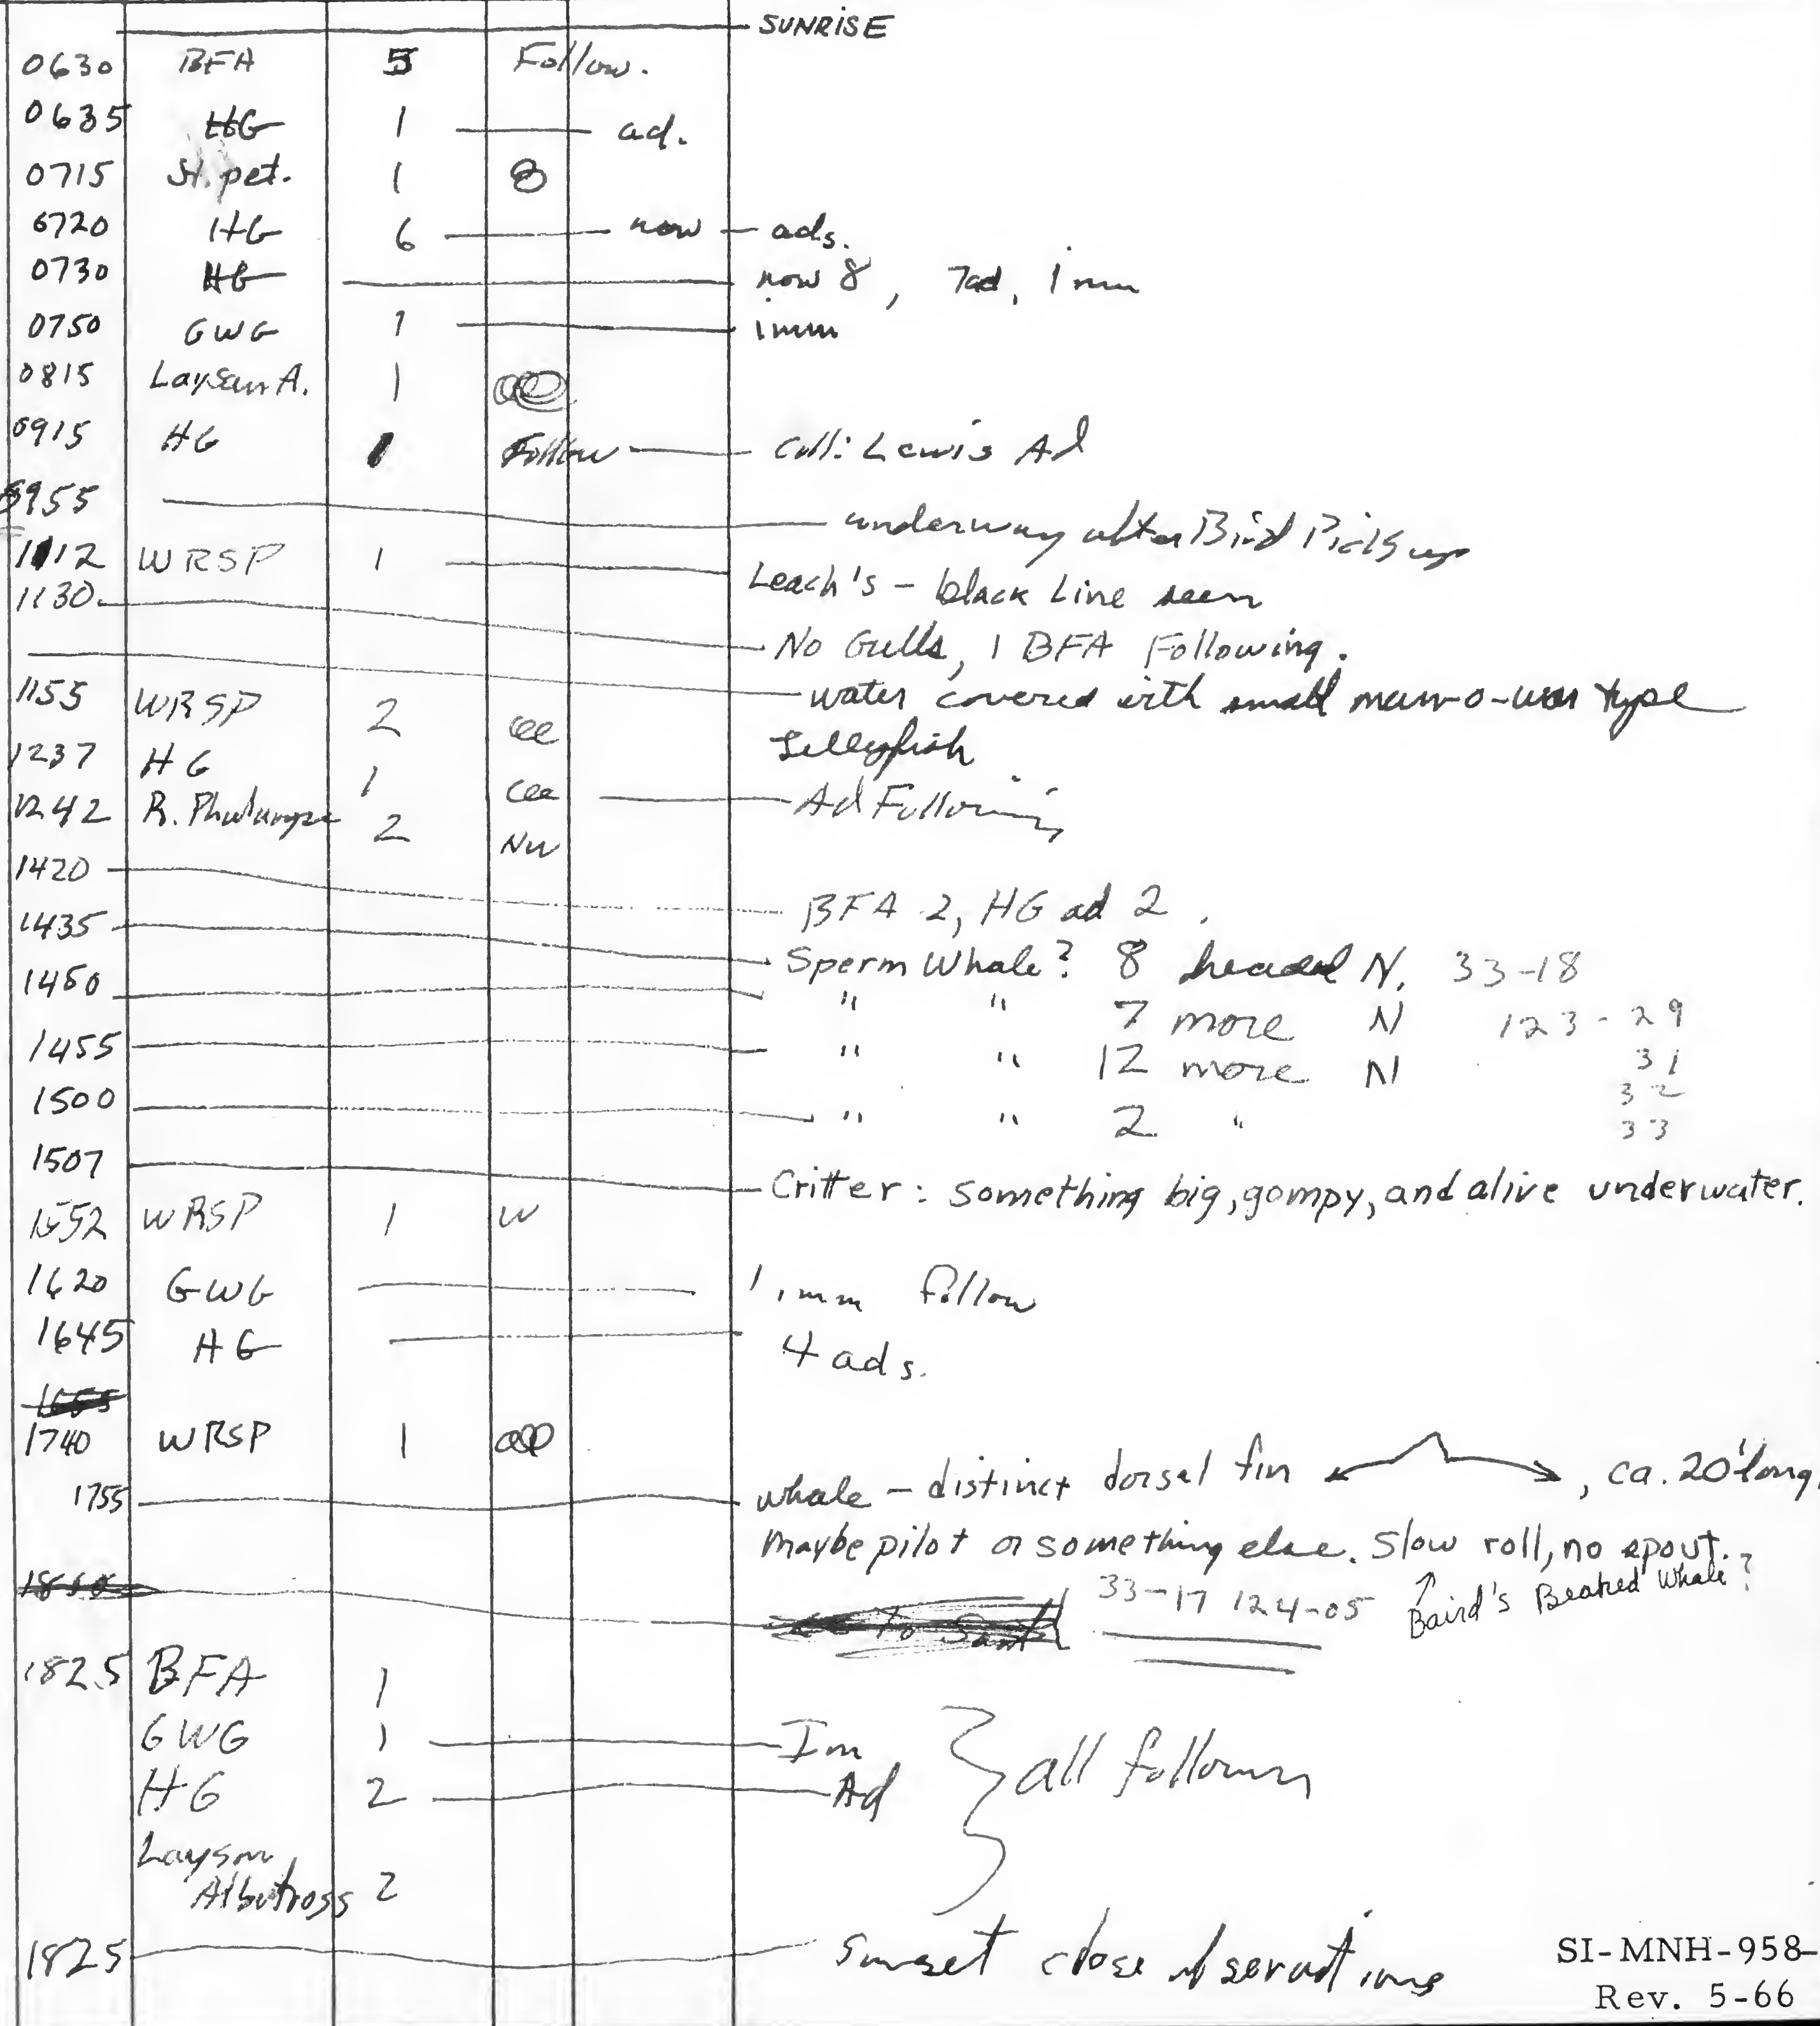 SUNRISE
0630 BFA 5 Follow.
0635 HG 1 ad.
0715 St. pet. 1
0720 HG 6 now ads.
0730 HG now 8, 7ad, 1 imm
0750 GWG 1 imm
0815 Laysan A. 1
0915 HG 1 Follow Coll: Lewis Ad
0955 underway after Bird Pick up
1112 WRSP 1 Leach's - black Line seen
1130 No Gulls, 1 BFA Following.
water covered with small man-o-war type
1155 WRSP 2 Jellyfish
1237 HG 1 Ad Following
1242 R. Phalarope 2 NW
1420 BFA 2, HG ad 2.
1435 Sperm Whale? 8 headed N. 33-18
1450 " " 7 more N 123-29
1455 " " 12 more N 31
32
1500 " " 2 " 33
1507 Critter: something big, gompy, and alive underwater.
1552 WRSP 1 W
1620 GWG 1 imm follow
1645 HG 4 ads.
1740 WRSP 1
1755 whale - distinct dorsal fin , ca. 20' long.
Maybe pilot or something else. Slow roll, no spout.
33-17 124-05 ↑ Baird's Beaked Whale?
1825 BFA 1
GWG 1 Im
HG 2 Ad } all following
Laysan
Albatross 2
1825 Sunset close observations
SI-MNH-958-
Rev. 5-66